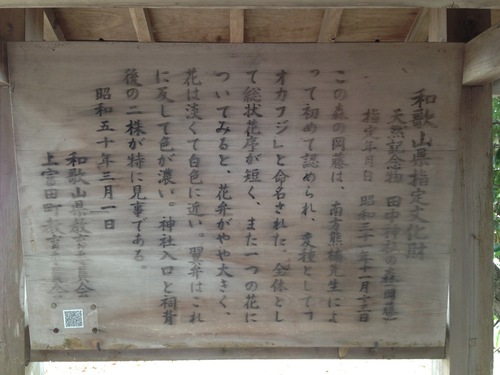 和歌山県指定文化財
天然記念物 田中神社の森(岡藤)
指定年月日 昭和三十一年十一月十三日
この森の岡藤は、南方熊楠先生によ
って初めて認められ、変種として「
オカフジ」と命名された。全体とし
て総状花序が短く、また一つの花に
ついてみると、花弁がやや大きく、
花は淡くて白色に近い。翼弁はこれ
に反して色が濃い。神社入口と祠背
後の二株が特に見事である。
昭和五十年三月一日
和歌山県教育委員会
上富田町教育委員会